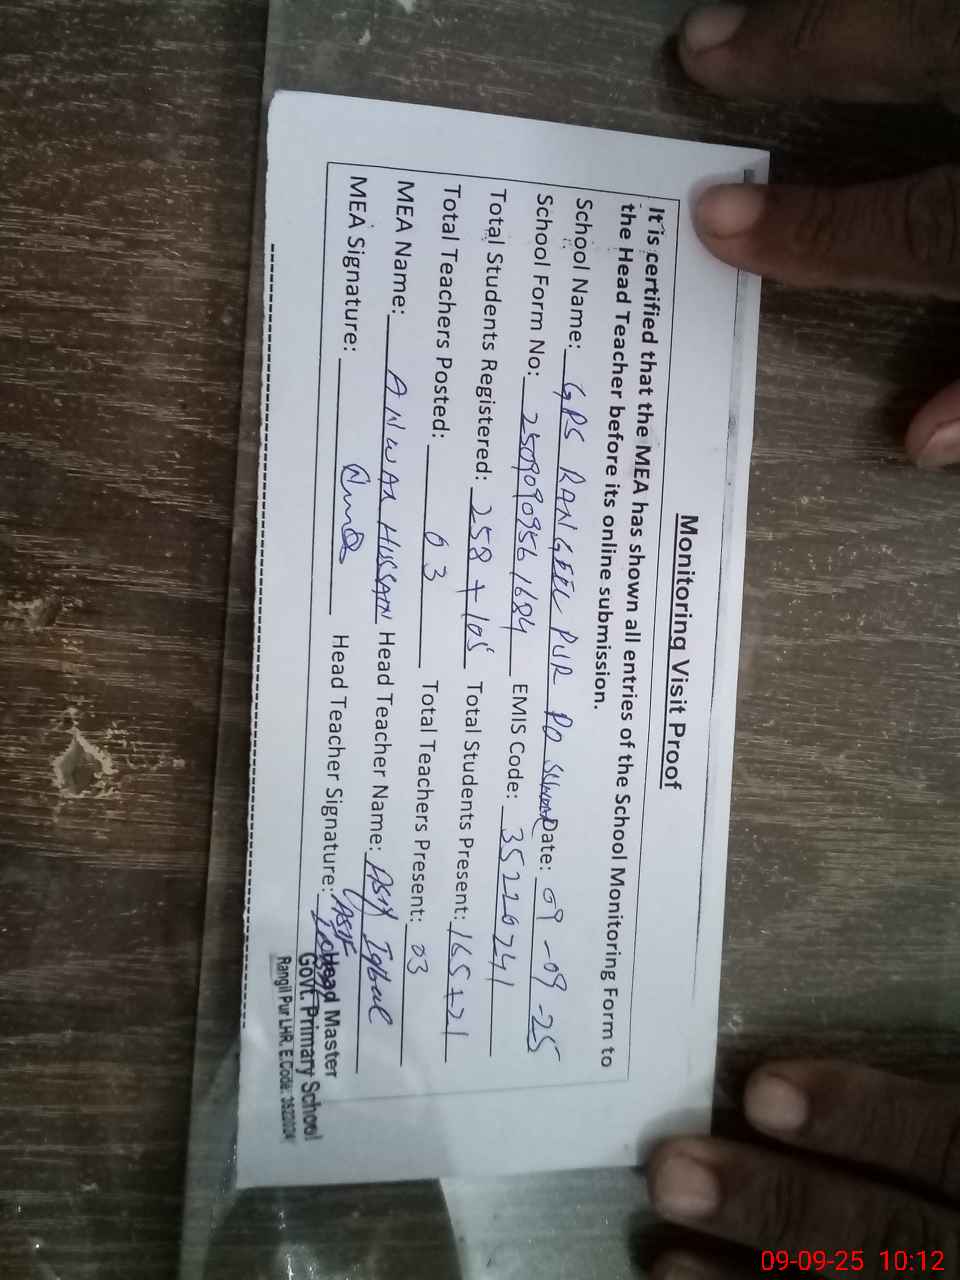 Monitoring Visit Proof
It is certified that the MEA has shown all entries of the School Monitoring Form to
the Head Teacher before its online submission.
School Name: GPS RANGEEL PUR PO SUNDAR Date: 09-09-25
School Form No: 2509090956 1684 EMIS Code: 35220241
Total Students Registered: 258 + 105 Total Students Present: 165 + 21
Total Teachers Posted: 03 Total Teachers Present: 03
MEA Name: ANWAR HUSSAIN Head Teacher Name: ASIF Iqbal
MEA Signature: Head Teacher Signature: ASIF
Iqbal
Head Master
Govt. Primary School
Rangil Pur LHR. E.Code:
09-09-25 10:12